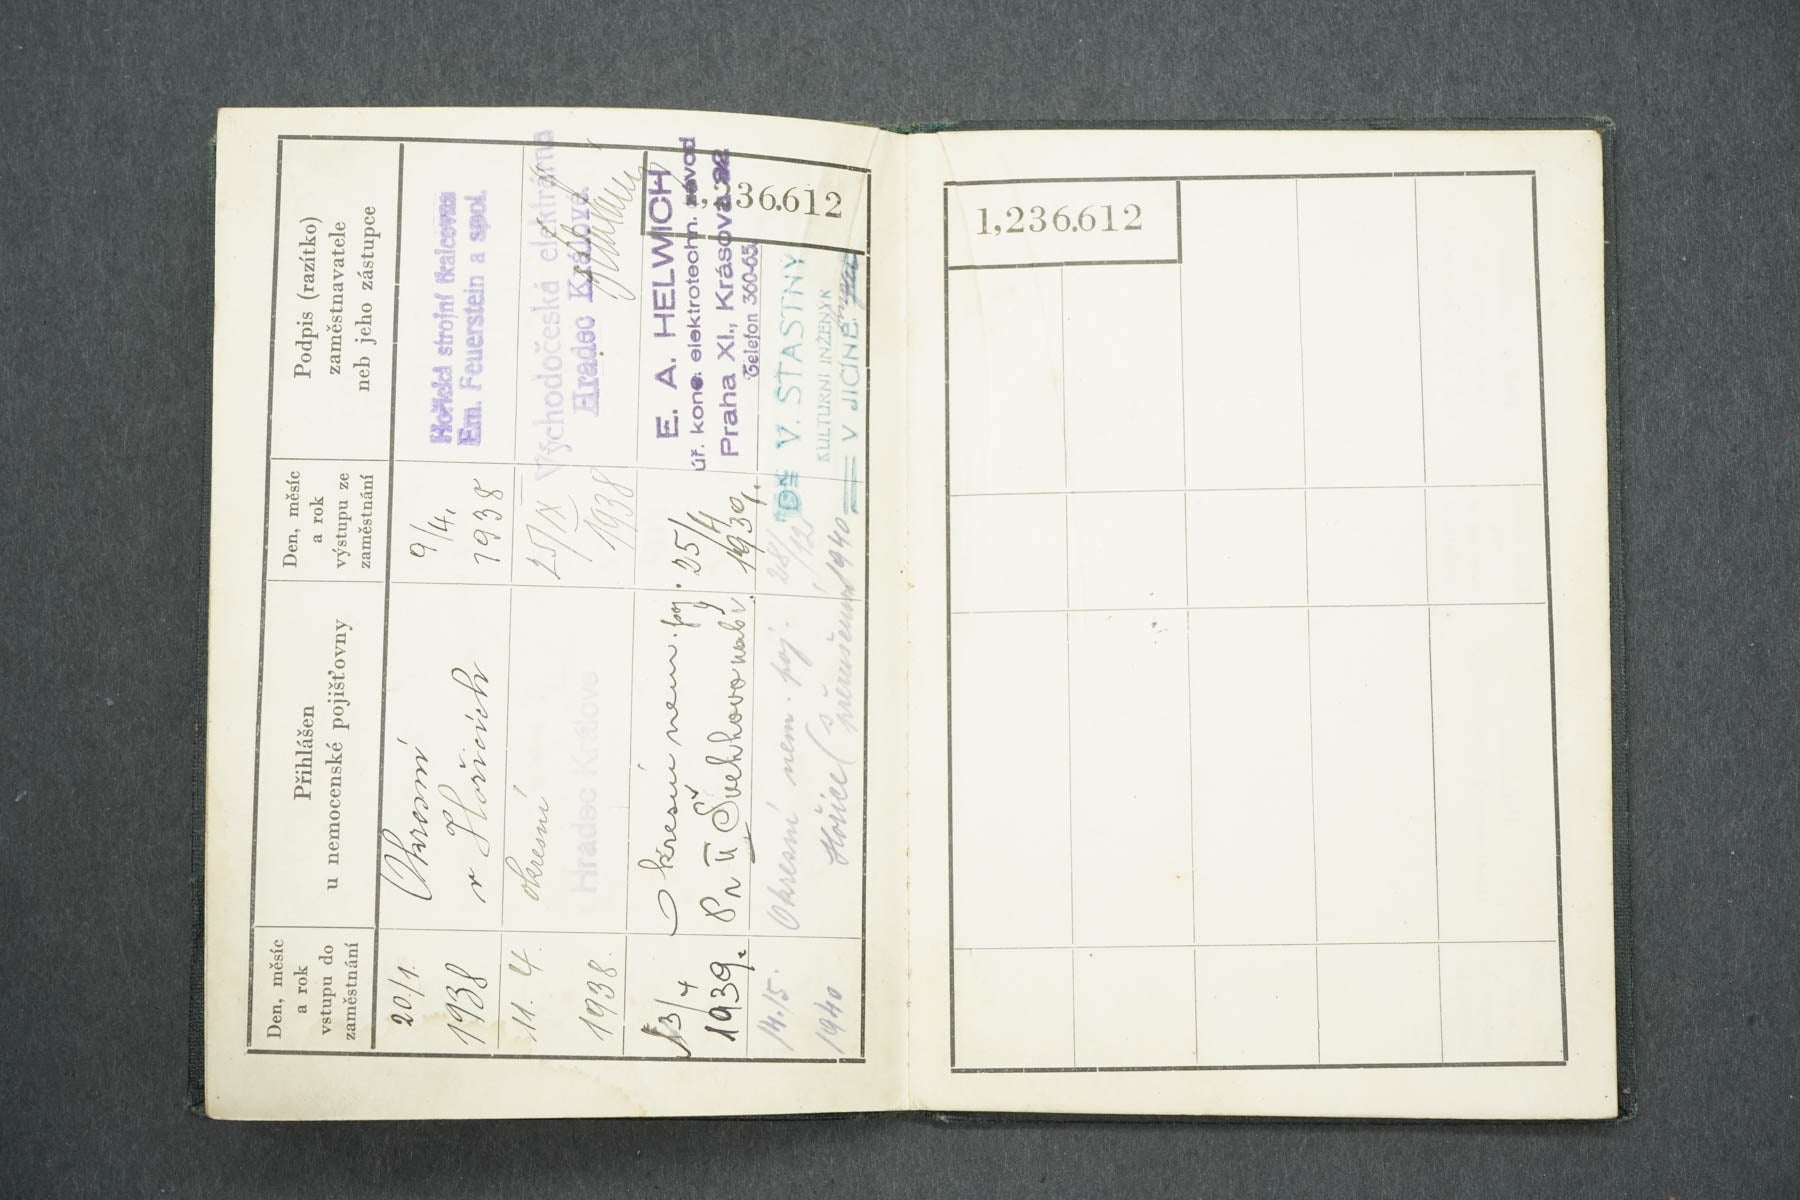 Den, měsíc
a rok
vstupu do
zaměstnání
Přihlášen
u nemocenské pojišťovny
Den, měsíc
a rok
výstupu ze
zaměstnání
Podpis (razítko)
zaměstnavatele
neb jeho zástupce
20/1.
1938
Okresní
v Hořicích
9/4.
1938
Hořická strojní tkalcovna
Em. Feuerstein a spol.
11. 4.
1938.
okresní
Hradec Králové
25/IX
1938
Východočeská elektrárna
Hradec Králové.
13/4
1939.
Okresní nem. poj.
Pr II Švehlovo nábř.
25/4
1939.
E. A. HELWICH
úř. konc. elektrotechn. závod
Praha XI., Krásova
Telefon 360-65
14./5.
1940
Okresní nem. poj.
Hořice (s přerušením
28/12
1940
V. ŠŤASTNÝ
KULTURNÍ INŽENÝR
V JIČÍNĚ
1,236.612
1,236.612